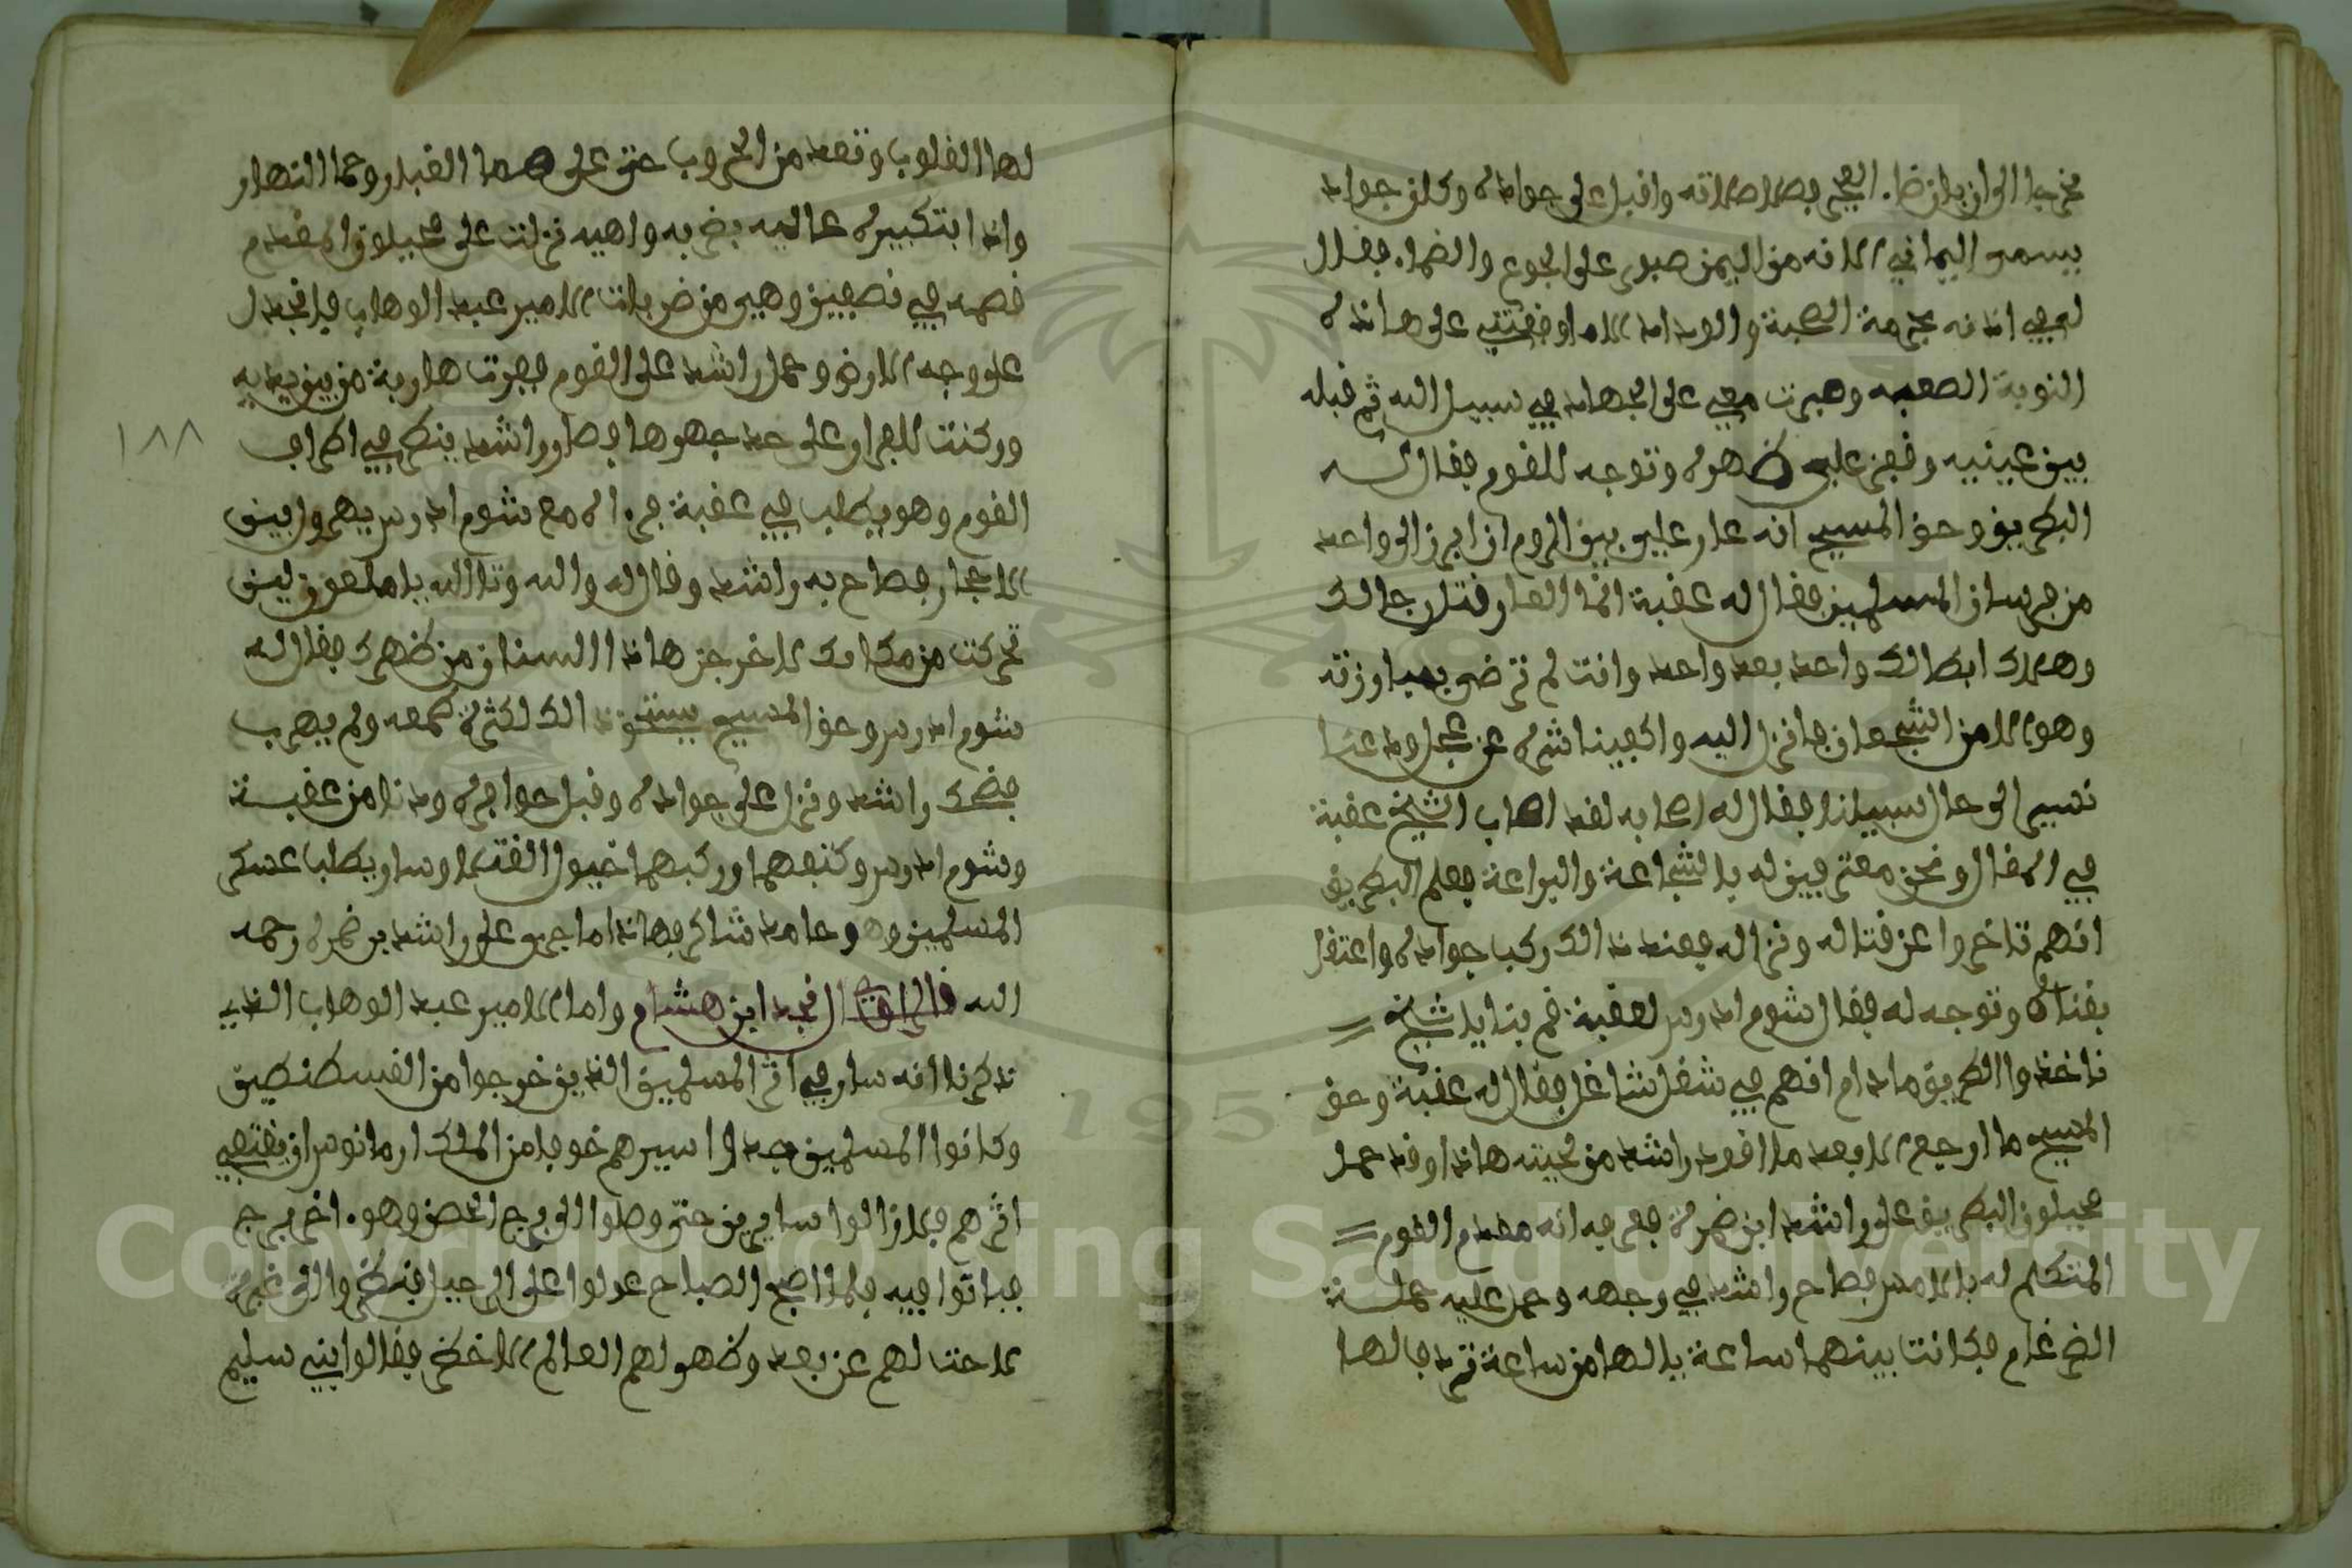 فخرجا الى ان بان ضا. الفجر فصلا صلاته واقبل على جواده وكان جواده
يسمى اليماني لانه من اليمن صبور على الجوع والضما. فقال
لعمي انه بحرمة الصحبة والوداد الا ما وقفتني على هاذه
النوبة الصعبه وصبرت معي على الجهاد في سبيل الله ثم قبله
بين عينيه وقفز على ظهره وتوجه للقوم فقال له
البطريق وحق المسيح انه عار علي بين الروم ان ابرز الى واحد
من فرسان المسلمين فقال له عقبة انما العار قتل رجالك
وهلاك ابطالك واحد بعد واحد وانت لم ترض بمبارزته
وهو لا من الشجعان فانزل اليه واكفينا شره عن عجل ودعنا
نسير الى حال سبيلنا فقال له اصحابه لقد اصاب الشيخ عقبة
في المقال ونحن معترفين له بالشجاعة والبراعة فعلم البطريق
انهم تاخروا عن قتاله ونزاله فعند ذالك ركب جواده واعتقل
بقناته وتوجه له فقال شوم ادرس لعقبة فم بنا يا شيخ
ناخذوا الطريق ما دام انهم في شغل شاغل فقال له عقبة وحق
المسيح ما ارجع الا بعد ما اقود راشد من لحيته هاذا وقد حمل
مخيلون البطريق على راشد ابن ضمرة فعرفه انه مقدم القوم
المتكلم له بالامس فصاح راشد في وجهه وحمل عليه حملة
الضرغام فكانت بينهما ساعة يا لها من ساعة ترجف لها
لها القلوب وتعد من الحروب حتى على هما الغبار وحما النهار
واذا بتكبيره عاليه بضربه واهيه نزلت على مخيلون المقدم
قصمه في نصفين وهي من ضربات الامير عبد الوهاب فانجدل
على وجه الارض وحمل راشد على القوم ففرت هاربة من بين يديه
وركنت للفرار على حد جهدها فصار راشد ينظر في اطراف
القوم وهو يطلب في عقبة فراه مع شوم ادرس يهرول بين
الاحجار فصاح به راشد وقال له والله وتالله يا ملعون لين
تحركت من مكانك لاخرجن هاذا السنان من ظهرك فقال له
شوم ادرس وحق المسيح يستحق ذالك لكثرة طمعه ولم يهرب
فضحك راشد ونزل على جواده وقبل حوافره ودنا من عقبة
وشوم ادرس وكتفهما وركبهما خيول القتلا وسار يطلب عسكر
المسلمين وهو حامد شاكر فهاذا ما جرى على راشد بن ضمره رحمه
الله قال الراوي نجد ابن هشام واما الامير عبد الوهاب الذي
ذكرنا انه سار في اثر المسلمين الذين خرجوا من القسطنطين
وكانوا المسلمين جدوا سيرهم خوفا من الملك ارمانوس ان يقتفي
اثرهم فلا زالوا سايرين حتى وصلوا الى برج الحصن وهو. اخر برج
فباتوا فيه فلما اصبح الصباح عولوا على الرحيل
لاحت لهم عن بعد وظهر لهم العالم الاخضر فقالوا بني سليم
١٨٨
Copyright © King Saud University
1957